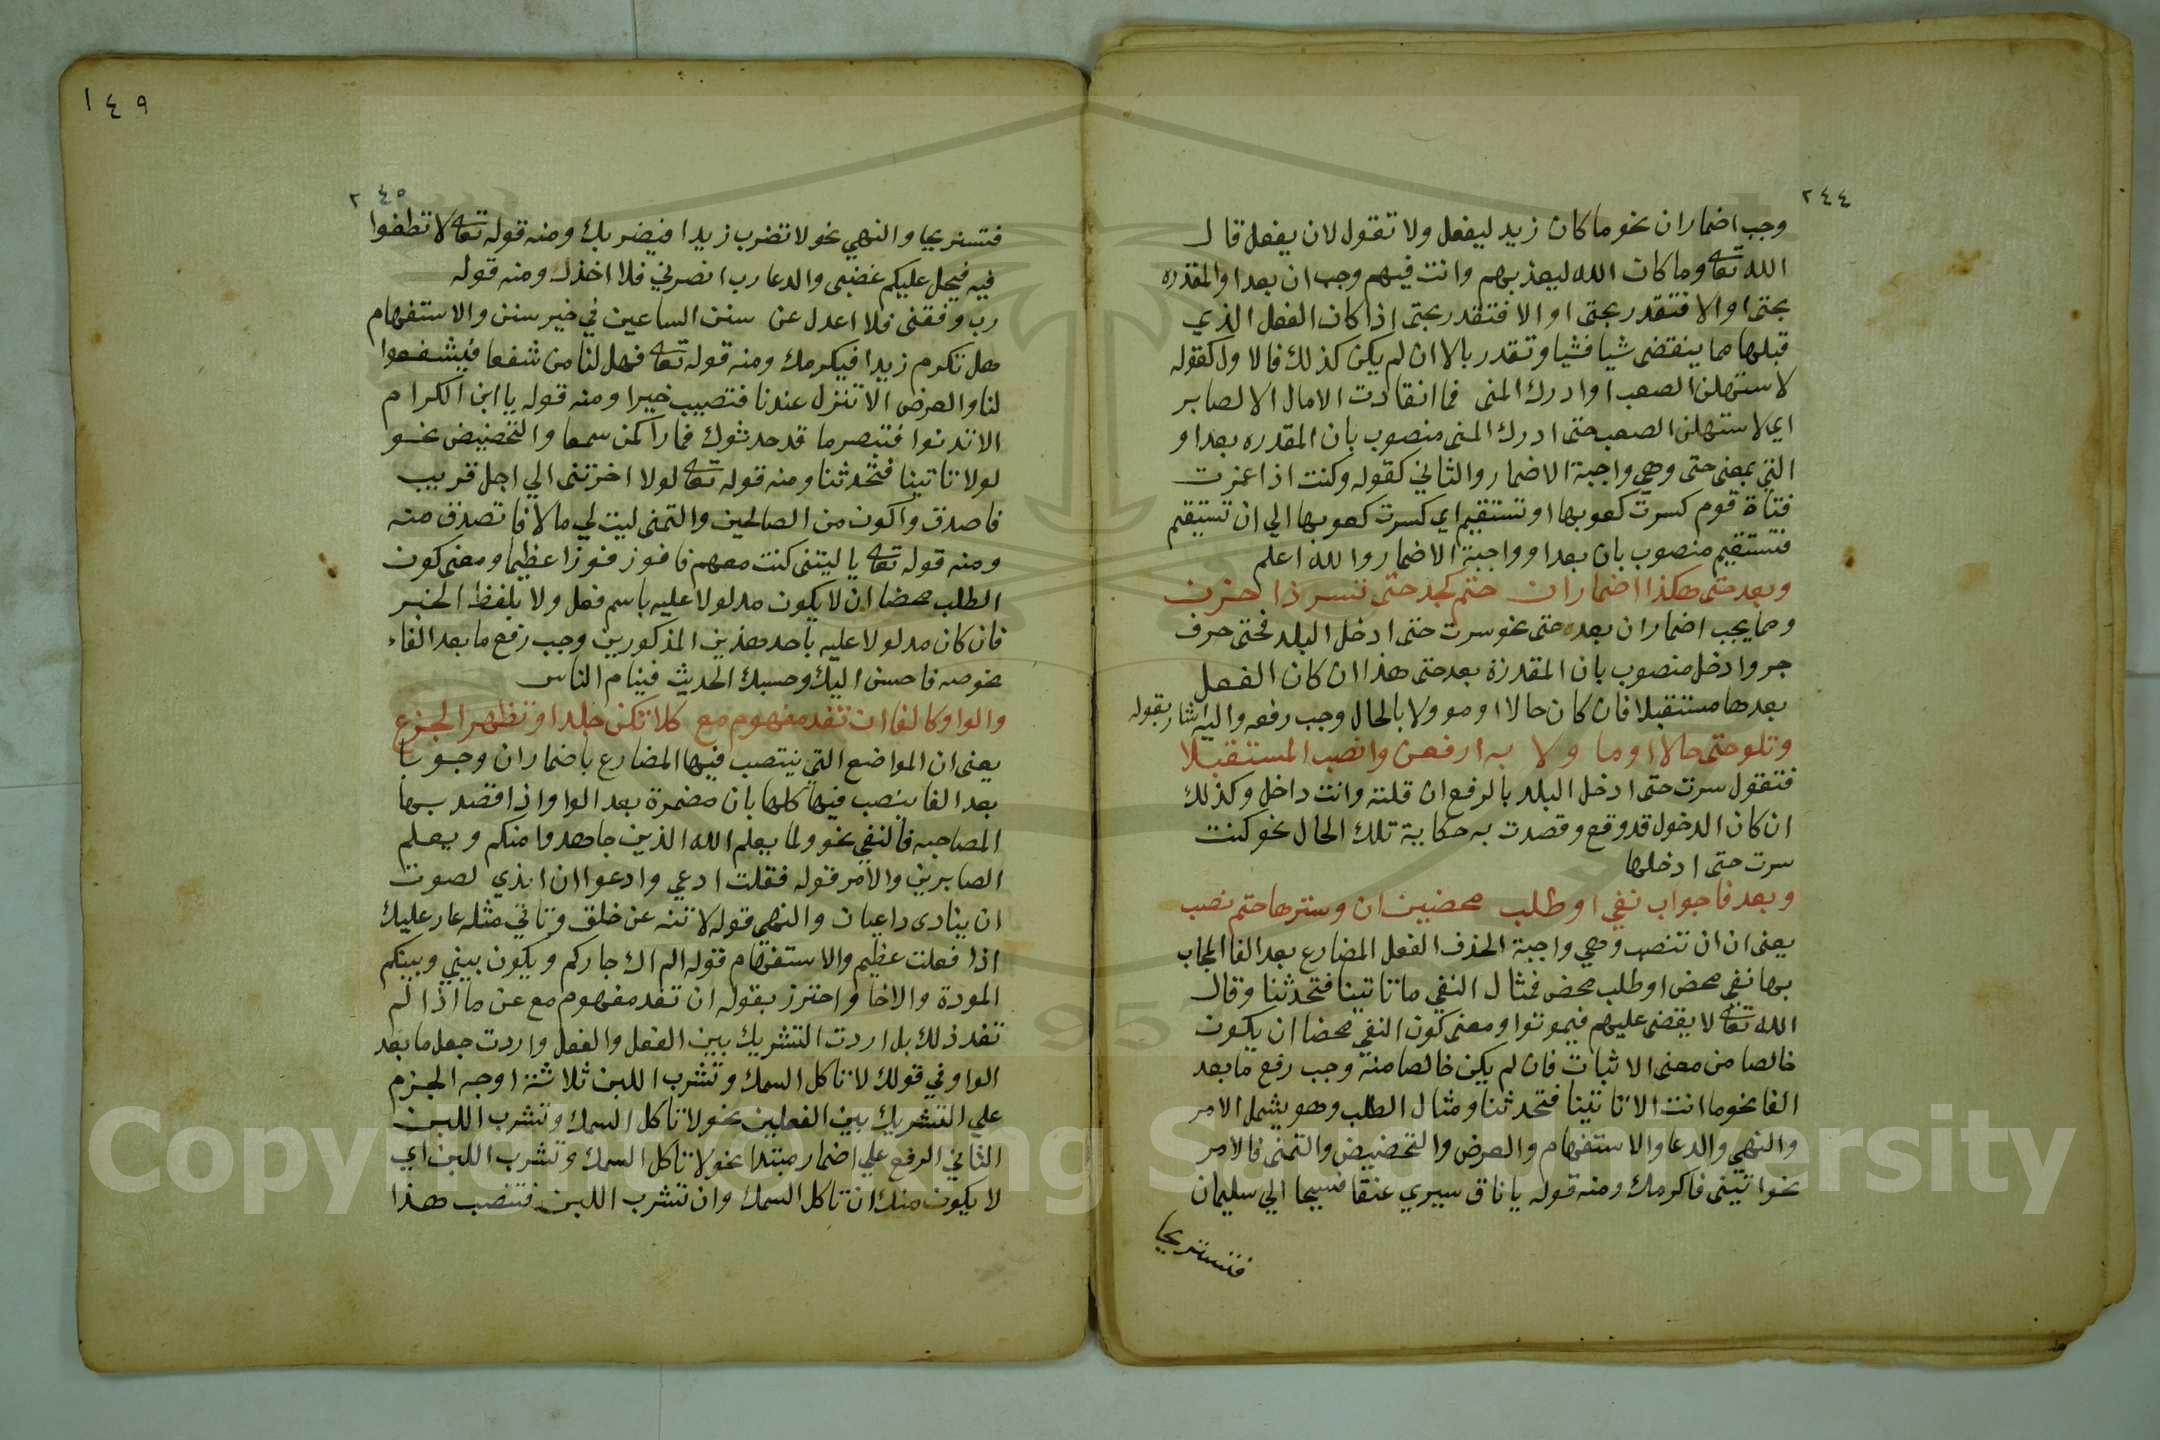 ٢٤٤
وجب اضمار ان نحو ما كان زيد ليفعل ولا تقول لان يفعل قال
الله تعا وما كان الله ليعذبهم وانت فيهم وجب ان بعد او المقدره
بحتى او الا فتقدر بحتى او الا فتقدر بحتى اذا كان الفعل الذي
قبلها مما ينقضى شيا فشيا وتقدر بالا ان لم يكن كذلك فالاول كقوله
لاستهلن الصعب او ادرك المنى فما انقادت الامال الا لصابر
اي لاستهلن الصعب حتى ادرك المنى منصوب بان المقدره بعد او
التي بمعنى حتى وهي واجبة الاضمار والثاني كقوله وكنت اذا غمزت
قناة قوم كسرت كعوبها او تستقيم اي كسرت كعوبها الي ان تستقيم
فتستقيم منصوب بان بعد او واجبة الاضمار والله اعلم
وبعد حتى هكذا اضمار ان حتم كجد حتى تسر ذا حزن
ومما يجب اضمار ان بعده حتى نحو سرت حتى ادخل البلد فحتى حرف
جر وادخل منصوب بان المقدرة بعد حتى هذا ان كان الفعل
بعدها مستقبلا فان كان حالا او موولا بالحال وجب رفعه واليه اشار بقوله
وتلو حتى حالا او ماولا به ارفعن وانصب المستقبلا
فتقول سرت حتى ادخل البلد بالرفع ان قلته وانت داخل وكذلك
ان كان الدخول قد وقع وقصدت به حكاية تلك الحال نحو كنت
سرت حتى ادخلها
وبعد فا جواب نفي او طلب محضين ان وسترها حتم نصب
يعنى ان ان تنصب وهي واجبة الحذف الفعل المضارع بعد الفا المجاب
بها نفي محض او طلب محض فمثال النفي ما تاتينا فتحدثنا وقال
الله تعا لا يقضى عليهم فيموتوا ومعنى كون النفي محضا ان يكون
خالصا من معنى الاثبات فان لم يكن خالصا منه وجب رفع ما بعد
الفا نحو ما انت الا تاتينا فتحدثنا ومثال الطلب وهو يشمل الامر
والنهي والدعا والاستفهام والعرض والتحضيض والتمنى فالامر
نحو ائتنى فاكرمك ومنه قوله يا ناق سيري عنقا فسيحا الي سليمان
فنستريحا
١٤٩
٢٤٥
فنستريحا والنهي نحو لا تضرب زيدا فيضربك ومنه قوله تعا لا تطغوا
فيه فيحل عليكم غضبى والدعا رب انصرني فلا اخذل ومنه قوله
رب وفقنى فلا اعدل عن سنن الساعين في خير سنن والاستفهام
هل تكرم زيدا فيكرمك ومنه قوله تعا فهل لنا من شفعا فيشفعوا
لنا والعرض الا تنزل عندنا فتصيب خيرا ومنه قوله يا ابن الكرام
الا تدنوا فتبصر ما قد حدثوك فما راكمن سمعا والتحضيض نحو
لولا تاتينا فتحدثنا ومنه قوله تعا لولا اخرتنى الي اجل قريب
فاصدق واكون من الصالحين والتمنى ليت لي مالا فاتصدق منه
ومنه قوله تعا يا ليتنى كنت معهم فافوز فوزا عظيما ومعنى كون
الطلب محضا ان لا يكون مدلولا عليه باسم فعل ولا بلفظ الخبر
فان كان مدلولا عليه باحد هذين المذكورين وجب رفع ما بعد الفاء
نحو صه فاحسن اليك وحسبك الحديث فينام الناس
والواو كالفا ان تفد مفهوم مع كلا تكن جلدا وتظهر الجزع
يعنى ان المواضع التي ينتصب فيها المضارع باضمار ان وجوبا
بعد الفا ينصب فيها كلها بان مضمرة بعد الواو اذا قصد بها
المصاحبه فالنفي نحو ولما يعلم الله الذين جاهدوا منكم ويعلم
الصابرين والامر قوله فقلت ادعي وادعوا ان اندي لصوت
ان ينادى داعيان والنهي قوله لا تنه عن خلق وتاتي مثله عار عليك
اذا فعلت عظيم والاستفهام قوله الم اك جاركم ويكون بيني وبينكم
المودة والاخا واحترز بقوله ان تفد مفهوم مع عن ما اذا لم
تفد ذلك بل اردت التشريك بين الفعل والفعل واردت جعل ما بعد
الواو في قولك لا تاكل السمك وتشرب اللبن ثلاثة اوجه الجزم
علي التشريك بين الفعلين نحو لا تاكل السمك وتشرب اللبن
الثاني الرفع علي اضمار مبتدا نحو لا تاكل السمك وتشرب اللبن اي
لا يكون منك ان تاكل السمك وان تشرب اللبن فتنصب هذا
Copyright © King Saud University